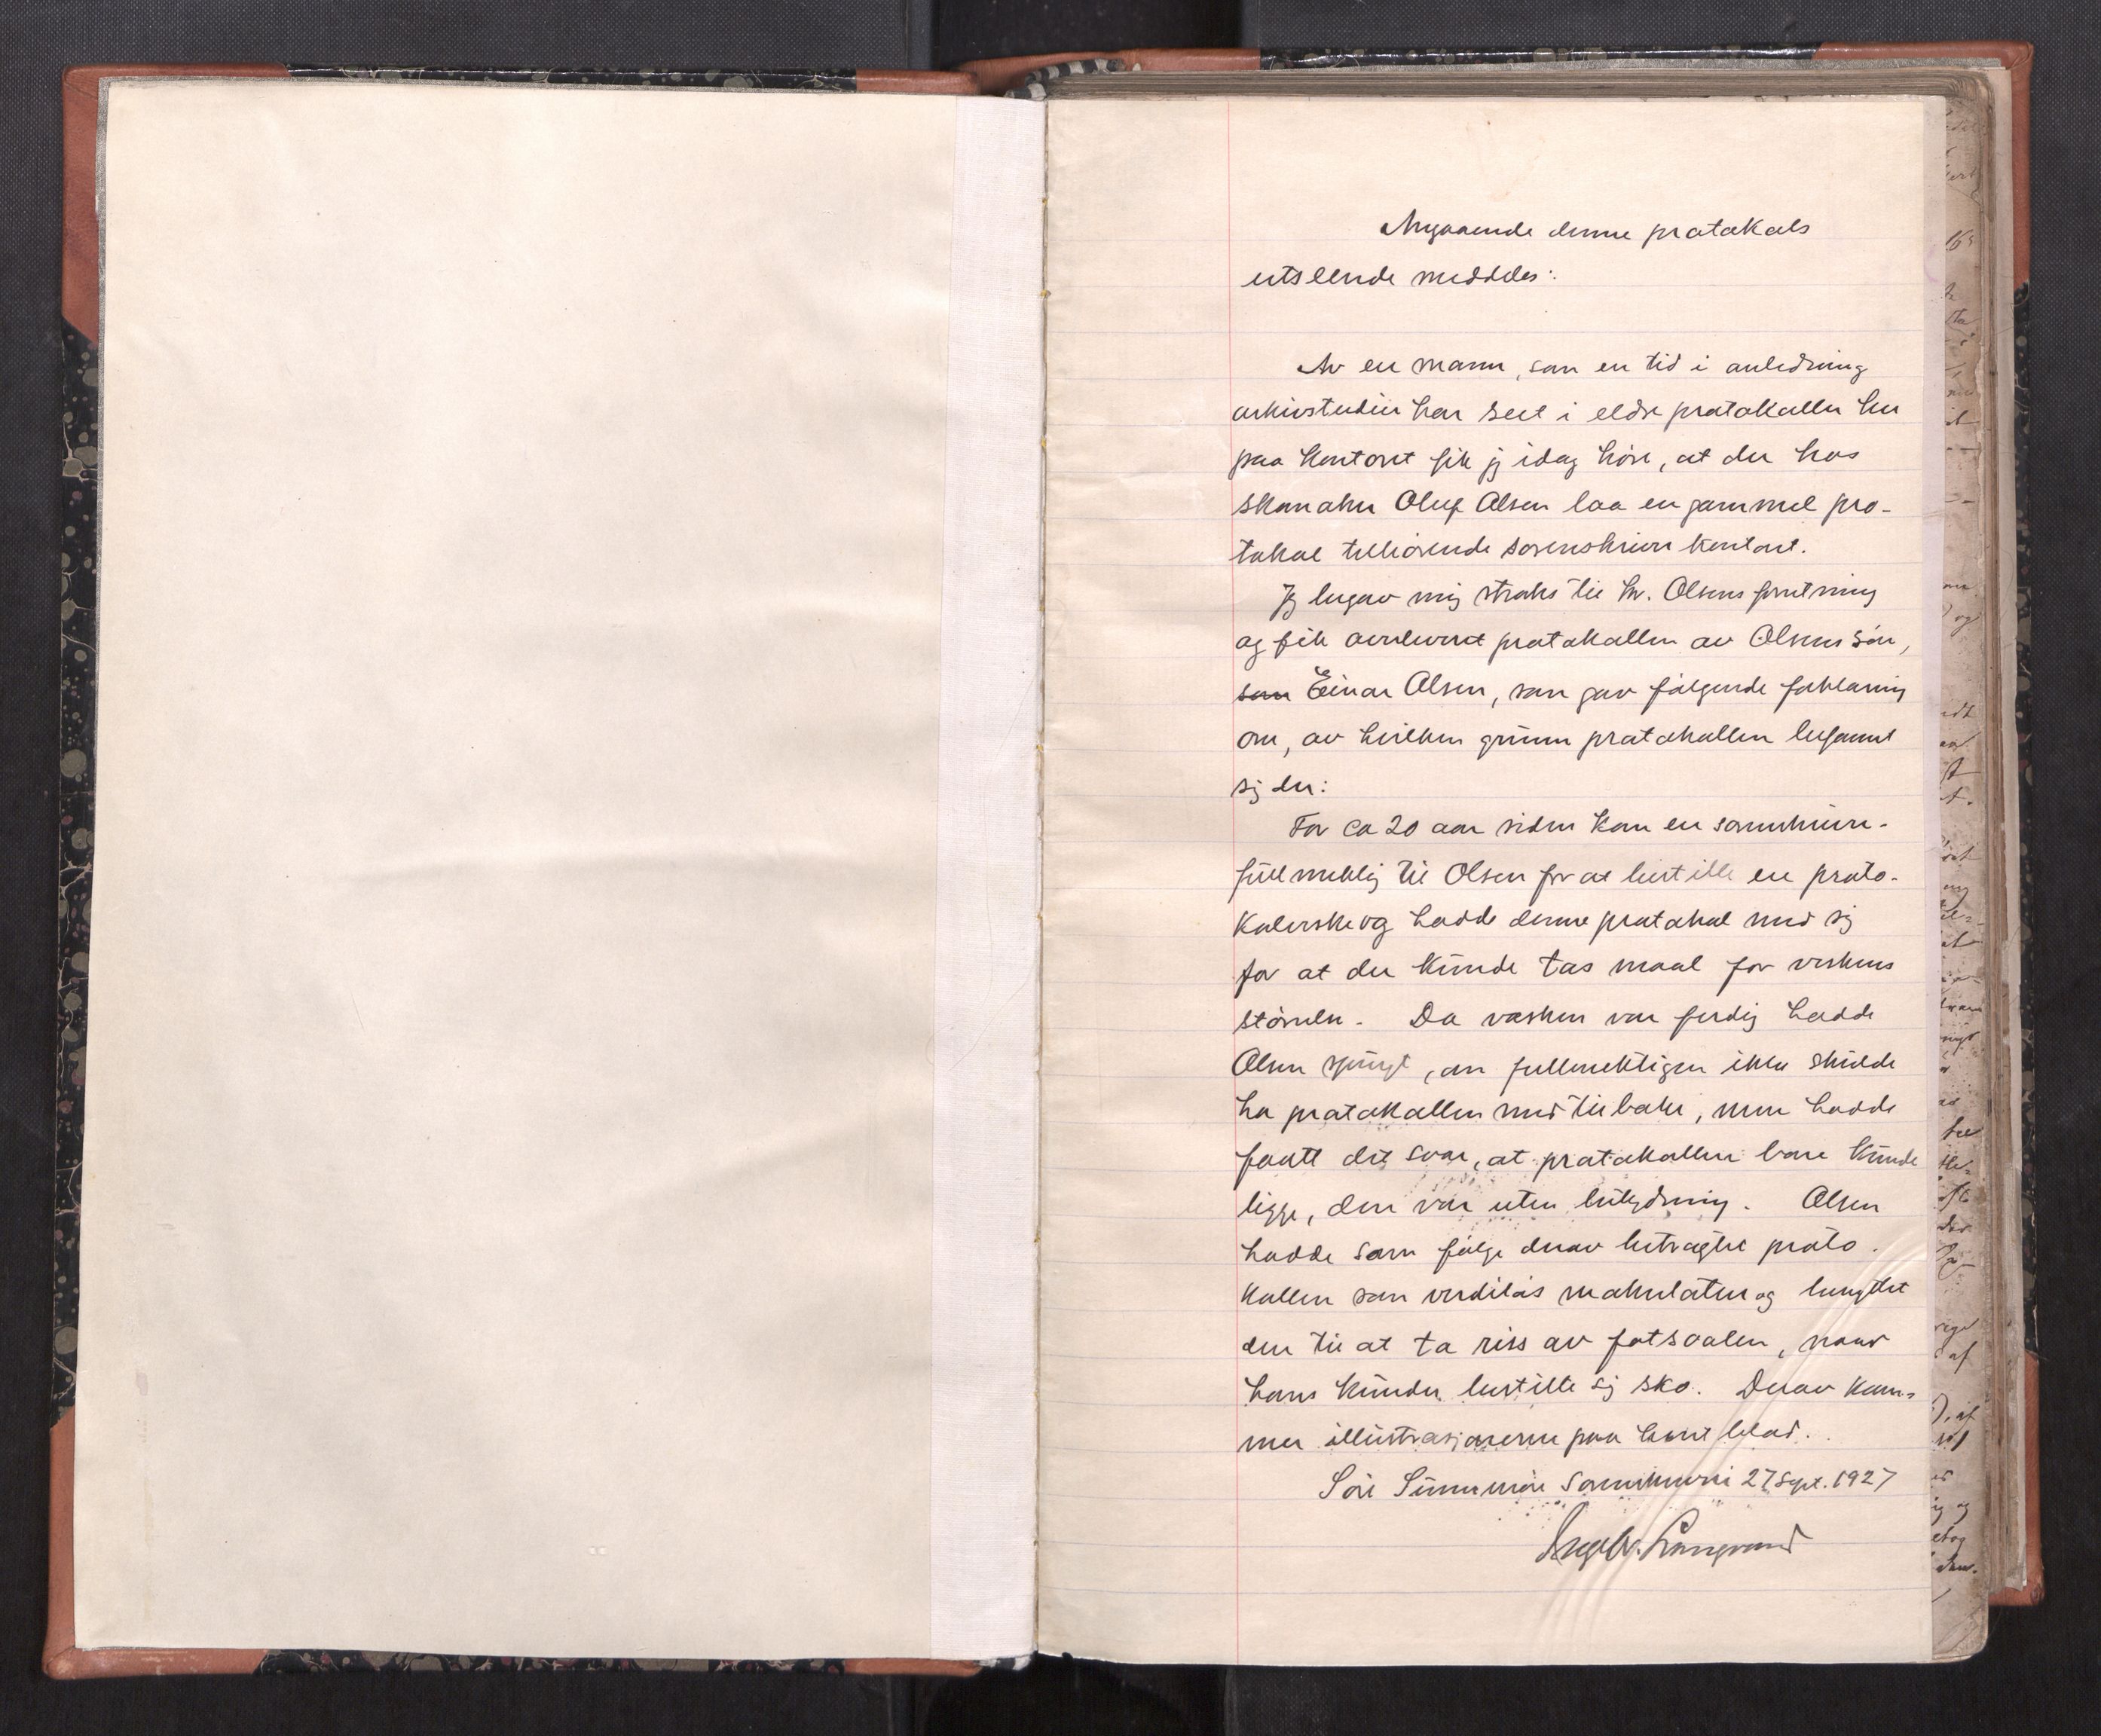 Angaaende denne protokols
utseende meddeles:
Av en mann, som en tid i anledning
arkivstudier har sett i eldre protokoller her
paa kontoret fik jeg idag høre, at der hos
skomaker Oluf Olsen laa en gammel pro-
tokol tilhørende sorenskriverkontoret.
Jeg begav mig straks til hr. Olsens forretning
og fik avlevert protokollen av Olsens søn,
som Einar Olsen, som gav følgende forklaring
om, av hvilken grunn protokollen befannt
sig der:
For ca 20 aar siden kom en sorenskriver-
fullmektig til Olsen for at bestille en proto-
kolveske og hadde denne protokol med sig
for at der kunde tas maal for veskens
størrelse. Da vesken var ferdig hadde
Olsen spurgt, om fullmektigen ikke skulde
ha protokollen med tilbake, men hadde
faatt det svar, at protokollen bare kunde
ligge, den var uten betydning. Olsen
hadde som følge derav betragtet proto-
kollen som verdiløs makulatur og benyttet
den til at ta riss av fotsaalen, naar
hans kunder bestilte sig sko. Derav kom-
mer illustrasjonerne paa hvert blad.
Søre Sunnmøre sorenskriveri 27 Sept. 1927